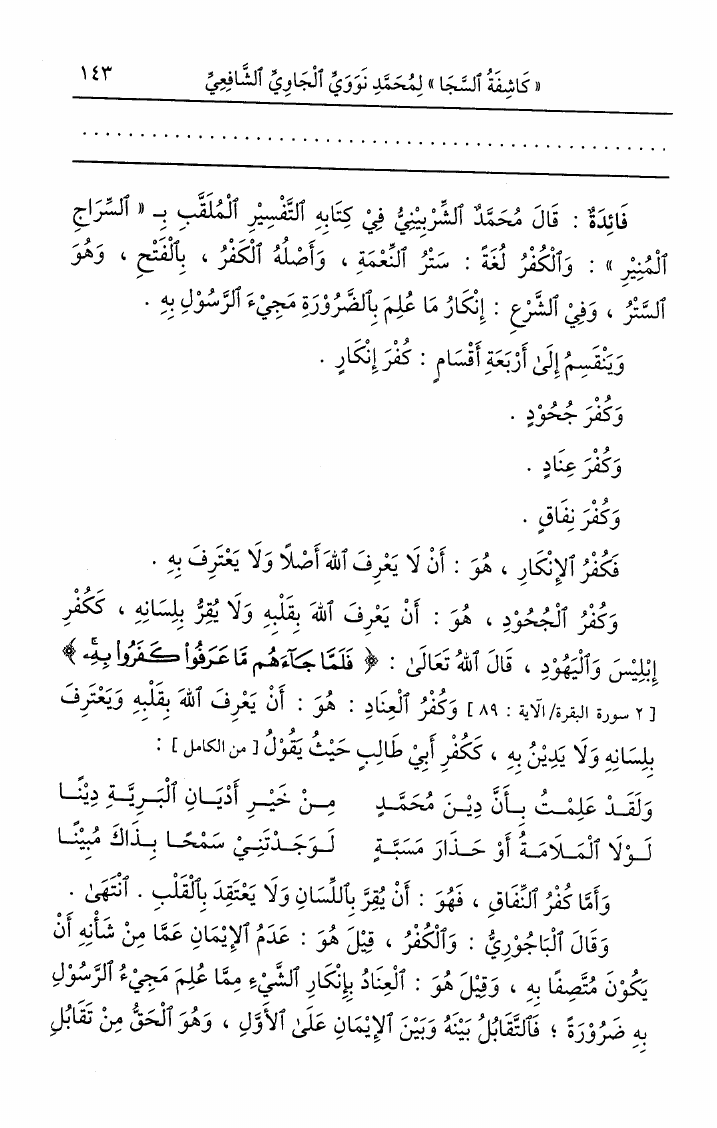 « كَاشِفَةُ ٱلسَّجَا » لِمُحَمَّدِ نَوَوَيِّ ٱلْجَاوِيِّ ٱلشَّافِعِيِّ ١٤٣
فَائِدَةٌ : قَالَ مُحَمَّدٌ ٱلشِّرْبِيْنِيُّ فِيْ كِتَابِهِ ٱلتَّفْسِيْرِ ٱلْمُلَقَّبِ بِـ « ٱلسِّرَاجِ
ٱلْمُنِيْرِ » : وَٱلْكُفْرُ لُغَةً : سَتْرُ ٱلنِّعْمَةِ ، وَأَصْلُهُ ٱلْكَفْرُ ، بِٱلْفَتْحِ ، وَهُوَ
ٱلسَّتْرُ ، وَفِيْ ٱلشَّرْعِ : إِنْكَارُ مَا عُلِمَ بِٱلضَّرُوْرَةِ مَجِيْءُ ٱلرَّسُوْلِ بِهِ .
وَيَنْقَسِمُ إِلَىٰ أَرْبَعَةِ أَقْسَامٍ : كُفْرَ إِنْكَارٍ .
وَكُفْرَ جُحُوْدٍ .
وَكُفْرَ عِنَادٍ .
وَكُفْرَ نِفَاقٍ .
فَكُفْرُ ٱلإِنْكَارِ ، هُوَ : أَنْ لَا يَعْرِفَ ٱللهَ أَصْلًا وَلَا يَعْتَرِفَ بِهِ .
وَكُفْرُ ٱلْجُحُوْدِ ، هُوَ : أَنْ يَعْرِفَ ٱللهَ بِقَلْبِهِ وَلَا يُقِرُّ بِلِسَانِهِ ، كَكُفْرِ
إِبْلِيْسَ وَٱلْيَهُوْدِ ، قَالَ ٱللهُ تَعَالَىٰ : ﴿ فَلَمَّا جَآءَهُم مَّا عَرَفُوا۟ كَفَرُوا۟ بِهِۦۚ ﴾
[ ٢ سورة البقرة/ الآية : ٨٩ ] وَكُفْرُ ٱلْعِنَادِ : هُوَ : أَنْ يَعْرِفَ ٱللهَ بِقَلْبِهِ وَيَعْتَرِفَ
بِلِسَانِهِ وَلَا يَدِيْنُ بِهِ ، كَكُفْرِ أَبِيْ طَالِبٍ حَيْثُ يَقُوْلُ [ من الكامل ] :
وَلَقَـدْ عَلِمْـتُ بِـأَنَّ دِيْـنَ مُحَمَّـدٍ مِـنْ خَيْـرِ أَدْيَـانِ ٱلْبَـرِيَّـةِ دِيْنًـا
لَـوْلَا ٱلْمَـلَامَـةُ أَوْ حَـذَارَ مَسَبَّـةٍ لَـوَجَـدْتَنِـيْ سَمْحًـا بِـذَاكَ مُبِيْنًـا
وَأَمَّا كُفْرُ ٱلنِّفَاقِ ، فَهُوَ : أَنْ يُقِرَّ بِٱللِّسَانِ وَلَا يَعْتَقِدَ بِٱلْقَلْبِ . ٱنْتَهَىٰ .
وَقَالَ ٱلْبَاجُوْرِيُّ : وَٱلْكُفْرُ ، قِيْلَ هُوَ : عَدَمُ ٱلإِيْمَانِ عَمَّا مِنْ شَأْنِهِ أَنْ
يَكُوْنَ مُتَّصِفًا بِهِ ، وَقِيْلَ هُوَ : ٱلْعِنَادُ بِإِنْكَارِ ٱلشَّيْءِ مِمَّا عُلِمَ مَجِيْءُ ٱلرَّسُوْلِ
بِهِ ضَرُوْرَةً ؛ فَٱلتَّقَابُلُ بَيْنَهُ وَبَيْنَ ٱلإِيْمَانِ عَلَىٰ ٱلأَوَّلِ ، وَهُوَ ٱلْحَقُّ مِنْ تَقَابُلِ